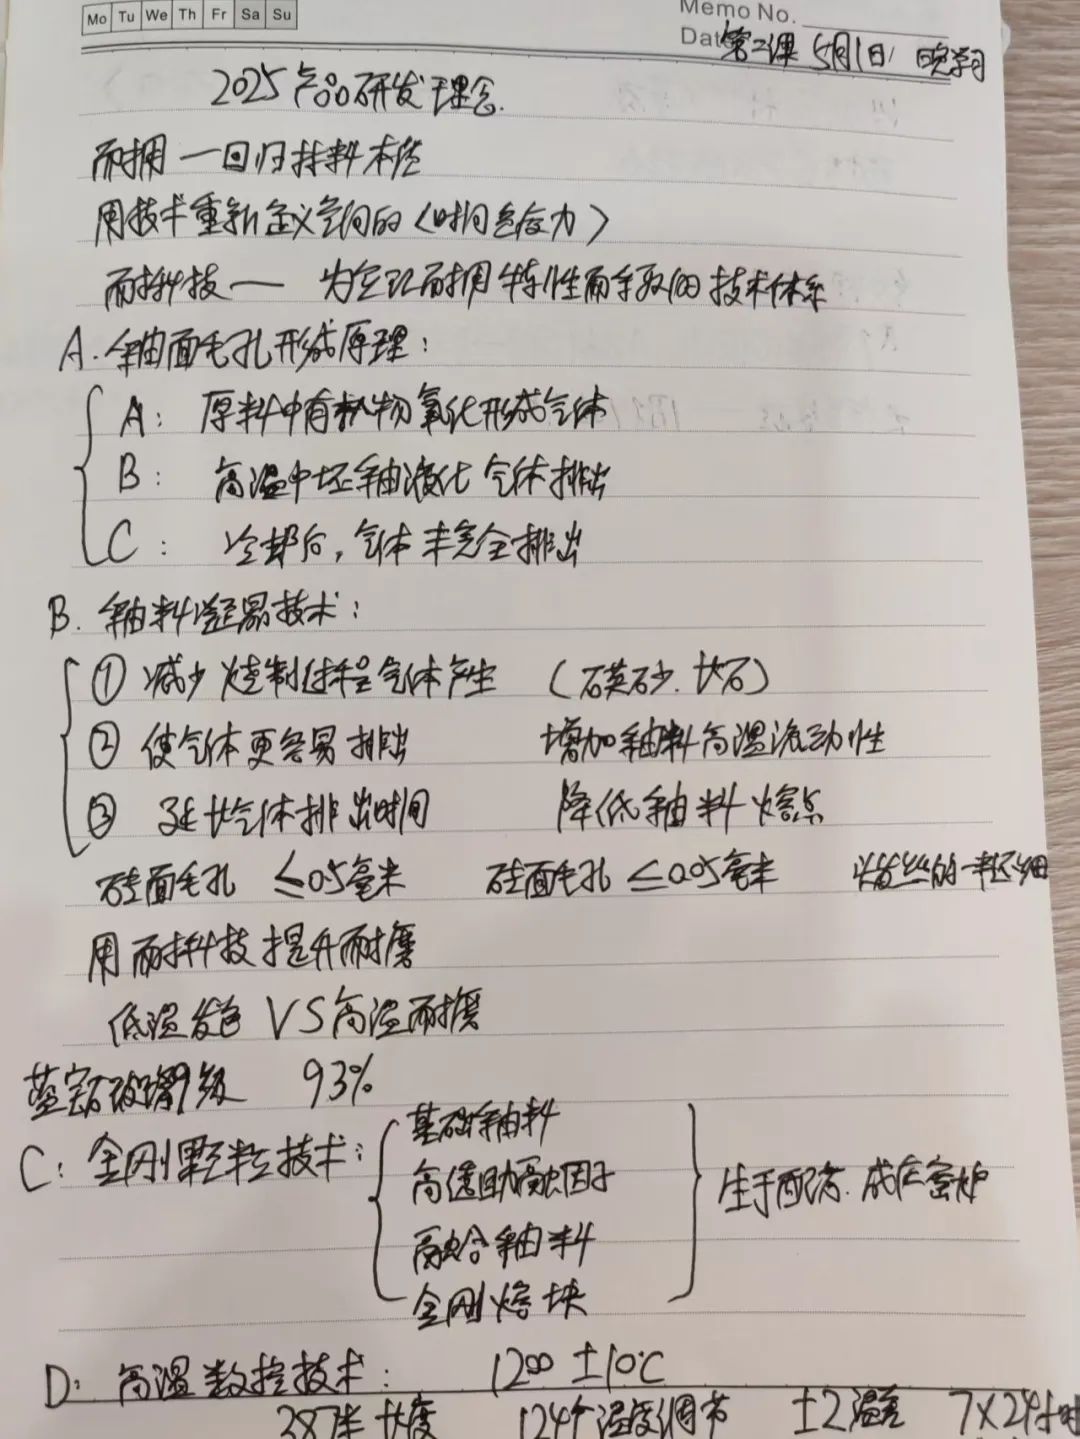 Mo Tu We Th Fr Sa Su
Memo No.
Date 第二课 5月1日 晚学习
2025产品研发理念.
耐用一回归材料本性
用技术重新定义空间的〈时间包容力〉
耐科技—— 为实现耐用特性而采取的技术体系
A. 釉面毛孔形成原理：
A： 原料中有机物氧化形成气体
B： 高温中坯釉液化气体排出
C： 冷却后，气体未完全排出
B. 釉料超易技术：
① 减少烧制过程气体产生 （石英砂.长石）
② 使气体更容易排出 增加釉料高温流动性
③ 延长气体排出时间 降低釉料熔点
砖面毛孔 ≤0.5毫米 砖面毛孔 ≤0.05毫米 发丝的一半还细
用耐科技提升耐磨
低温发色 VS 高温耐磨
蓝宝石玻璃9级 93%
C： 金刚颗粒技术：
基础釉料
高透助融因子
融合釉料
金刚熔块
生手配方. 成 窑炉
D： 高温数控技术： 1200 ±10℃
387米长度 124个温度调节 ±2温差 7×24小时